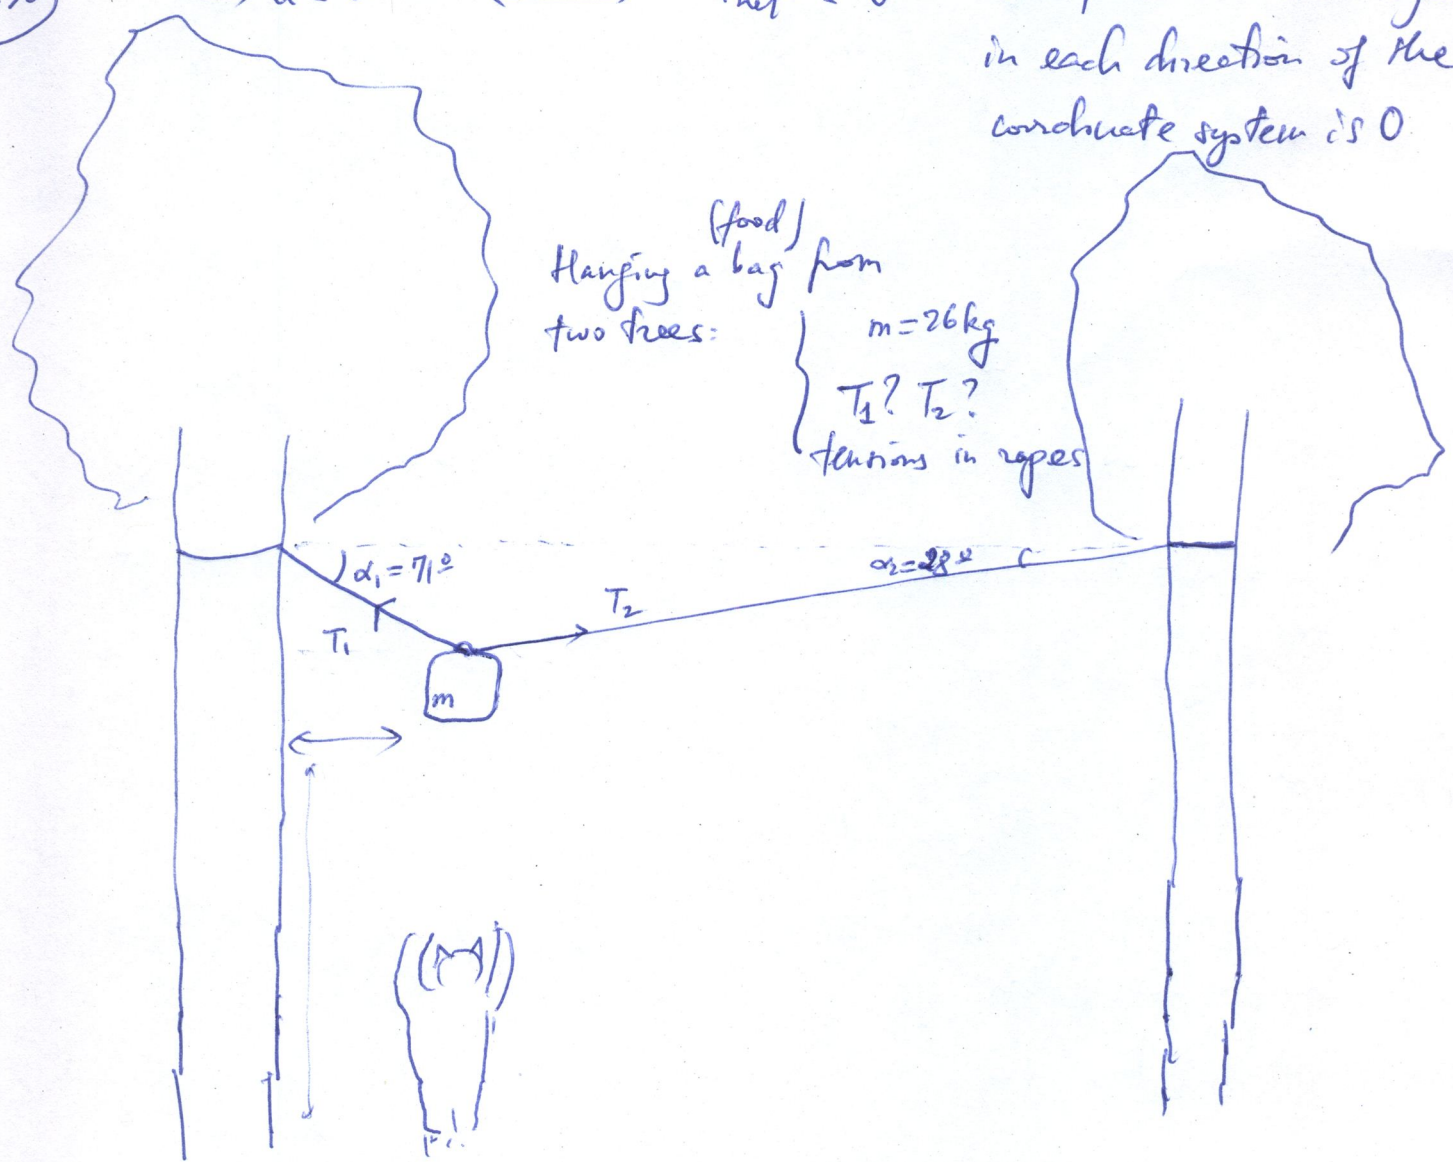 net
in each direction of the
coordinate system is 0
(food)
Hanging a bag from
two trees:
m=26kg
T₁? T₂?
tensions in ropes
α₁ = 71º
α₂=28º
T₂
T₁
m